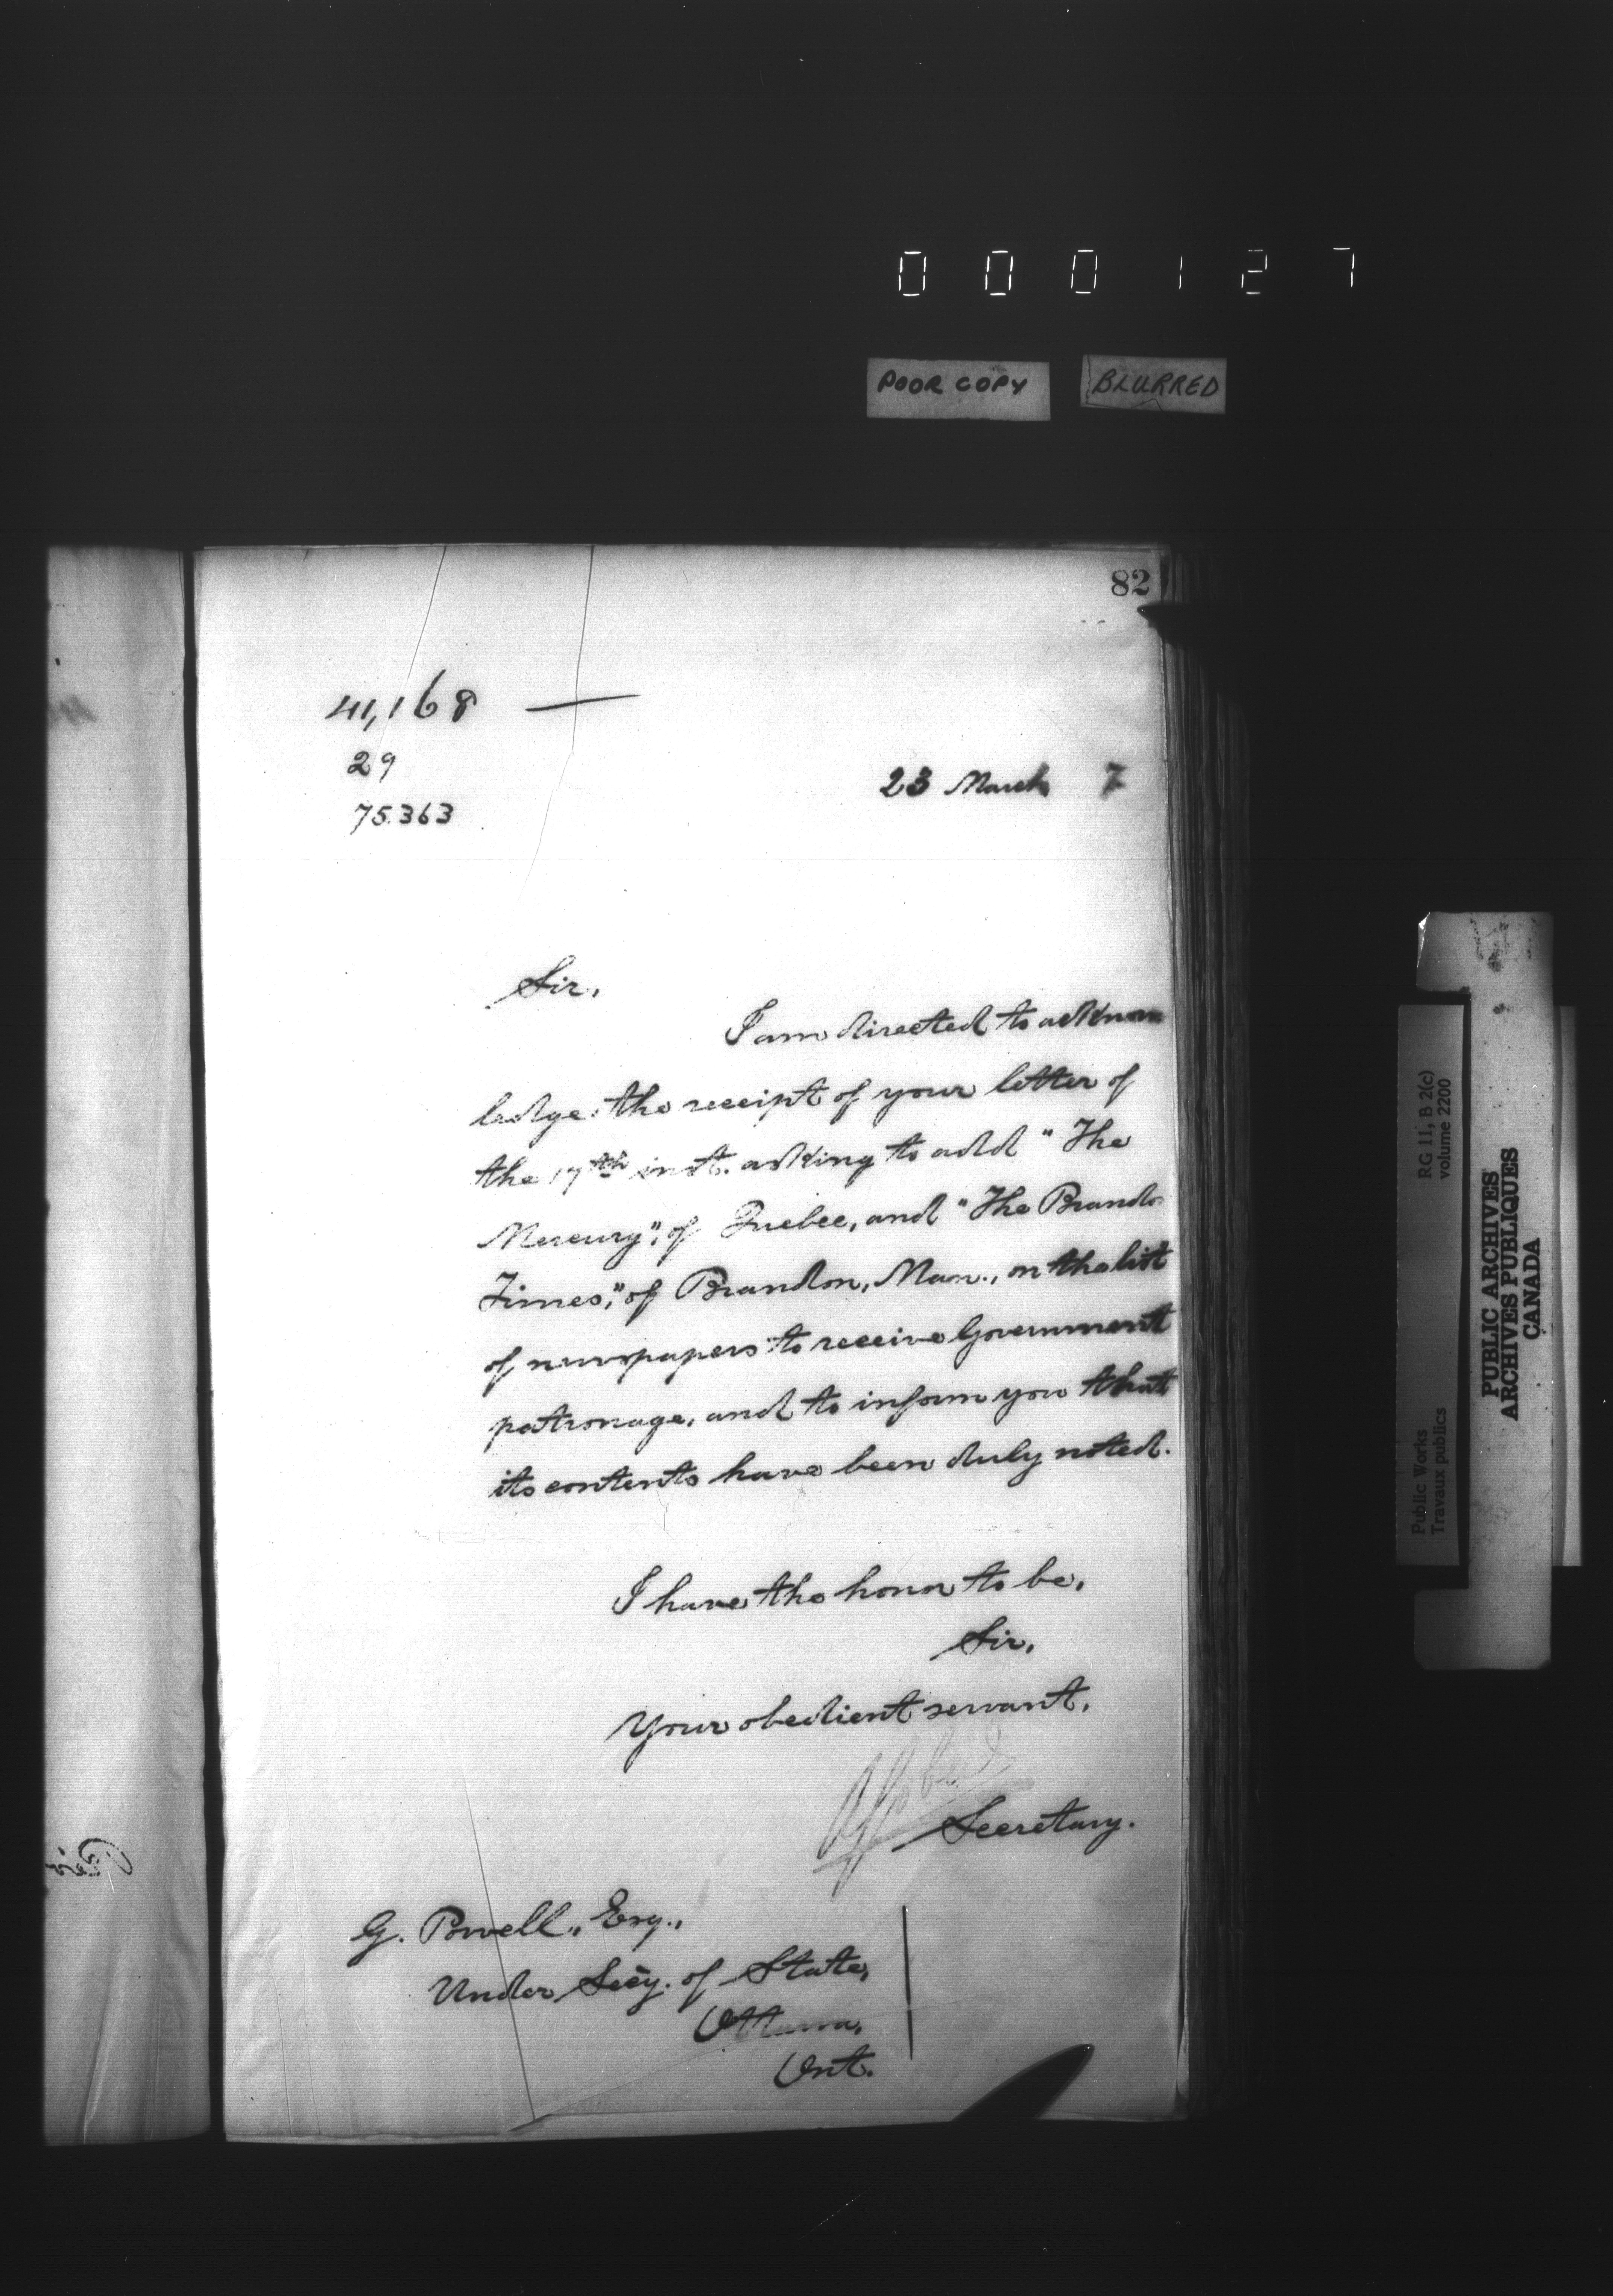 000127
POOR COPY BLURRED
82
41,168 —
29
75.363
23 March 7
Sir,
I am directed to acknow
ledge the receipt of your letter of
the 17th inst. asking to add "The
Mercury", of Quebec, and "The Brandon
Times," of Brandon, Man., on the list
of newspapers to receive Government
patronage, and to inform you that
its contents have been duly noted.
I have the honor to be,
Sir,
Your obedient servant,
Secretary.
G. Powell, Esq.,
Under Secy. of State,
Ottawa,
Ont.
Public Works
Travaux publics
RG 11, B 2(c)
volume 2200
PUBLIC ARCHIVES
ARCHIVES PUBLIQUES
CANADA